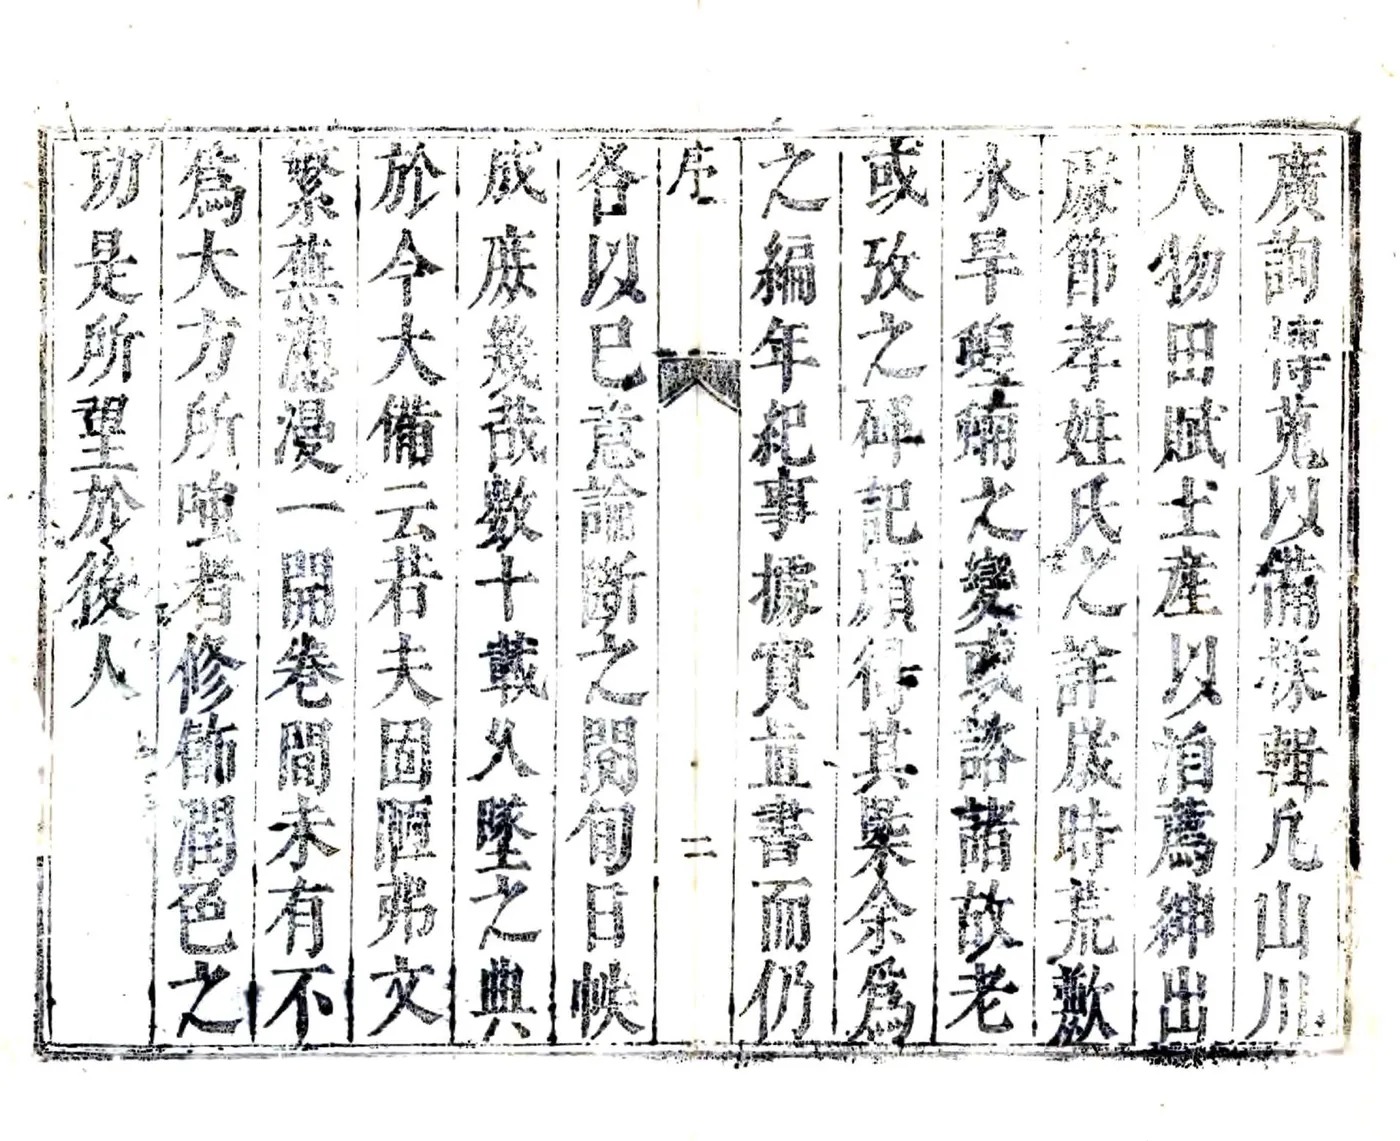 廣詢博蒐以備採輯凡山川
人物田賦土產以洎薦紳出
處節孝姓氏之詳歲時荒歉
水旱蝗蝻之變或諮諸故老
或攷之碑記頗得其槩余爲
之編年紀事據實直書而仍
序
二
各以已意論斷之閱旬日帙
成庶幾哉數十載久墜之典
於今大備云若夫固陋弗文
繁蕪漶漫一開卷間未有不
爲大方所嗤者修飾潤色之
功是所望於後人